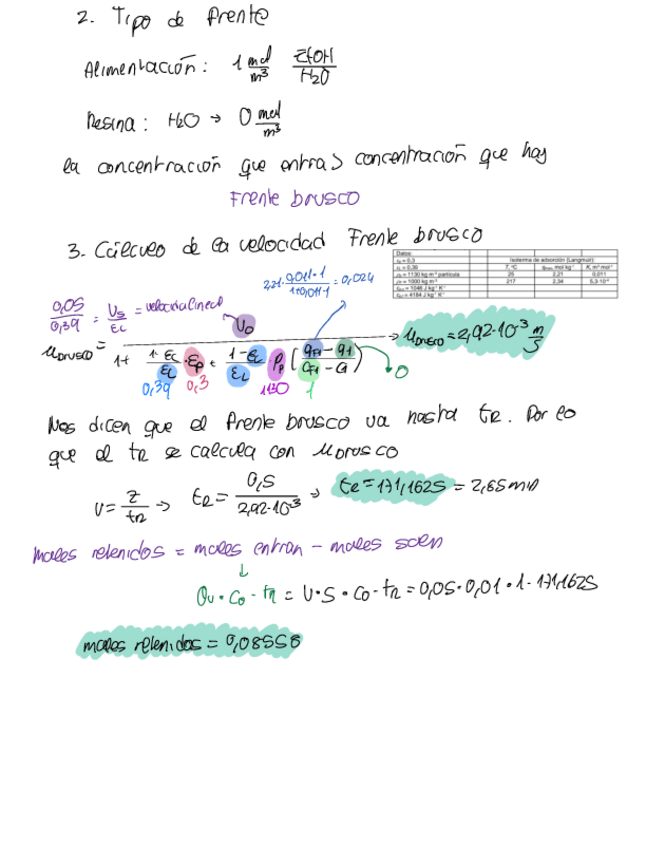 2. Tipo de frente
Alimentación: 1 mol/m³ EtOH/H2O
Resina: H2O → 0 mol/m³
la concentración que entra > concentración que hay
Frente brusco
3. Cálculo de la velocidad Frente brusco
Datos:
Isoterma de adsorción (Langmuir)
εp = 0,3
T, ºC
K, m³ mol⁻¹
25 2,21 0,011
217 2,34 6,3·10⁻⁴
ρp = 1130 kg m⁻³ partícula
2,21·0,011·1/1+0,011·1 = 0,024
0,05/0,39 = Us/εL = velocidad lineal
Ubrusco = U0 / 1 + 1-εL/εL · εp + 1-εL/εL · ρp (qF1 - q1/CF1 - C1) → Ubrusco = 2,92·10⁻³ m/s
0,39 0,3 1130 1 0
Nos dicen que el frente brusco va hasta tR. Por lo
que el tR se calcula con Ubrusco
v = z/tR → tR = 0,5/2,92·10⁻³ → tR = 171,162S = 2,85 min
moles retenidos = moles entran - moles salen
↓
Qv · C0 · tR = U · S · C0 · tR = 0,05 · 0,01 · 1 · 171,162S
moles retenidos = 0,08558